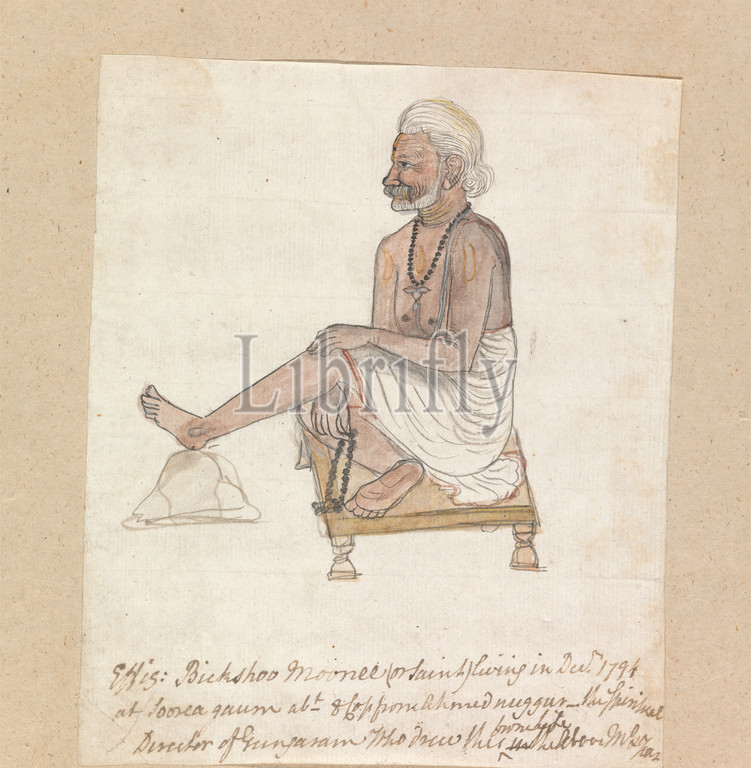 Librifly
Effig: Bickshoo Moonee (or Saint) living in Decr. 1794
at Soorea gaum abt. 8 Cos from Ahmednuggur — the Spiritual
Director of Gungaram Who drew this from life in the above